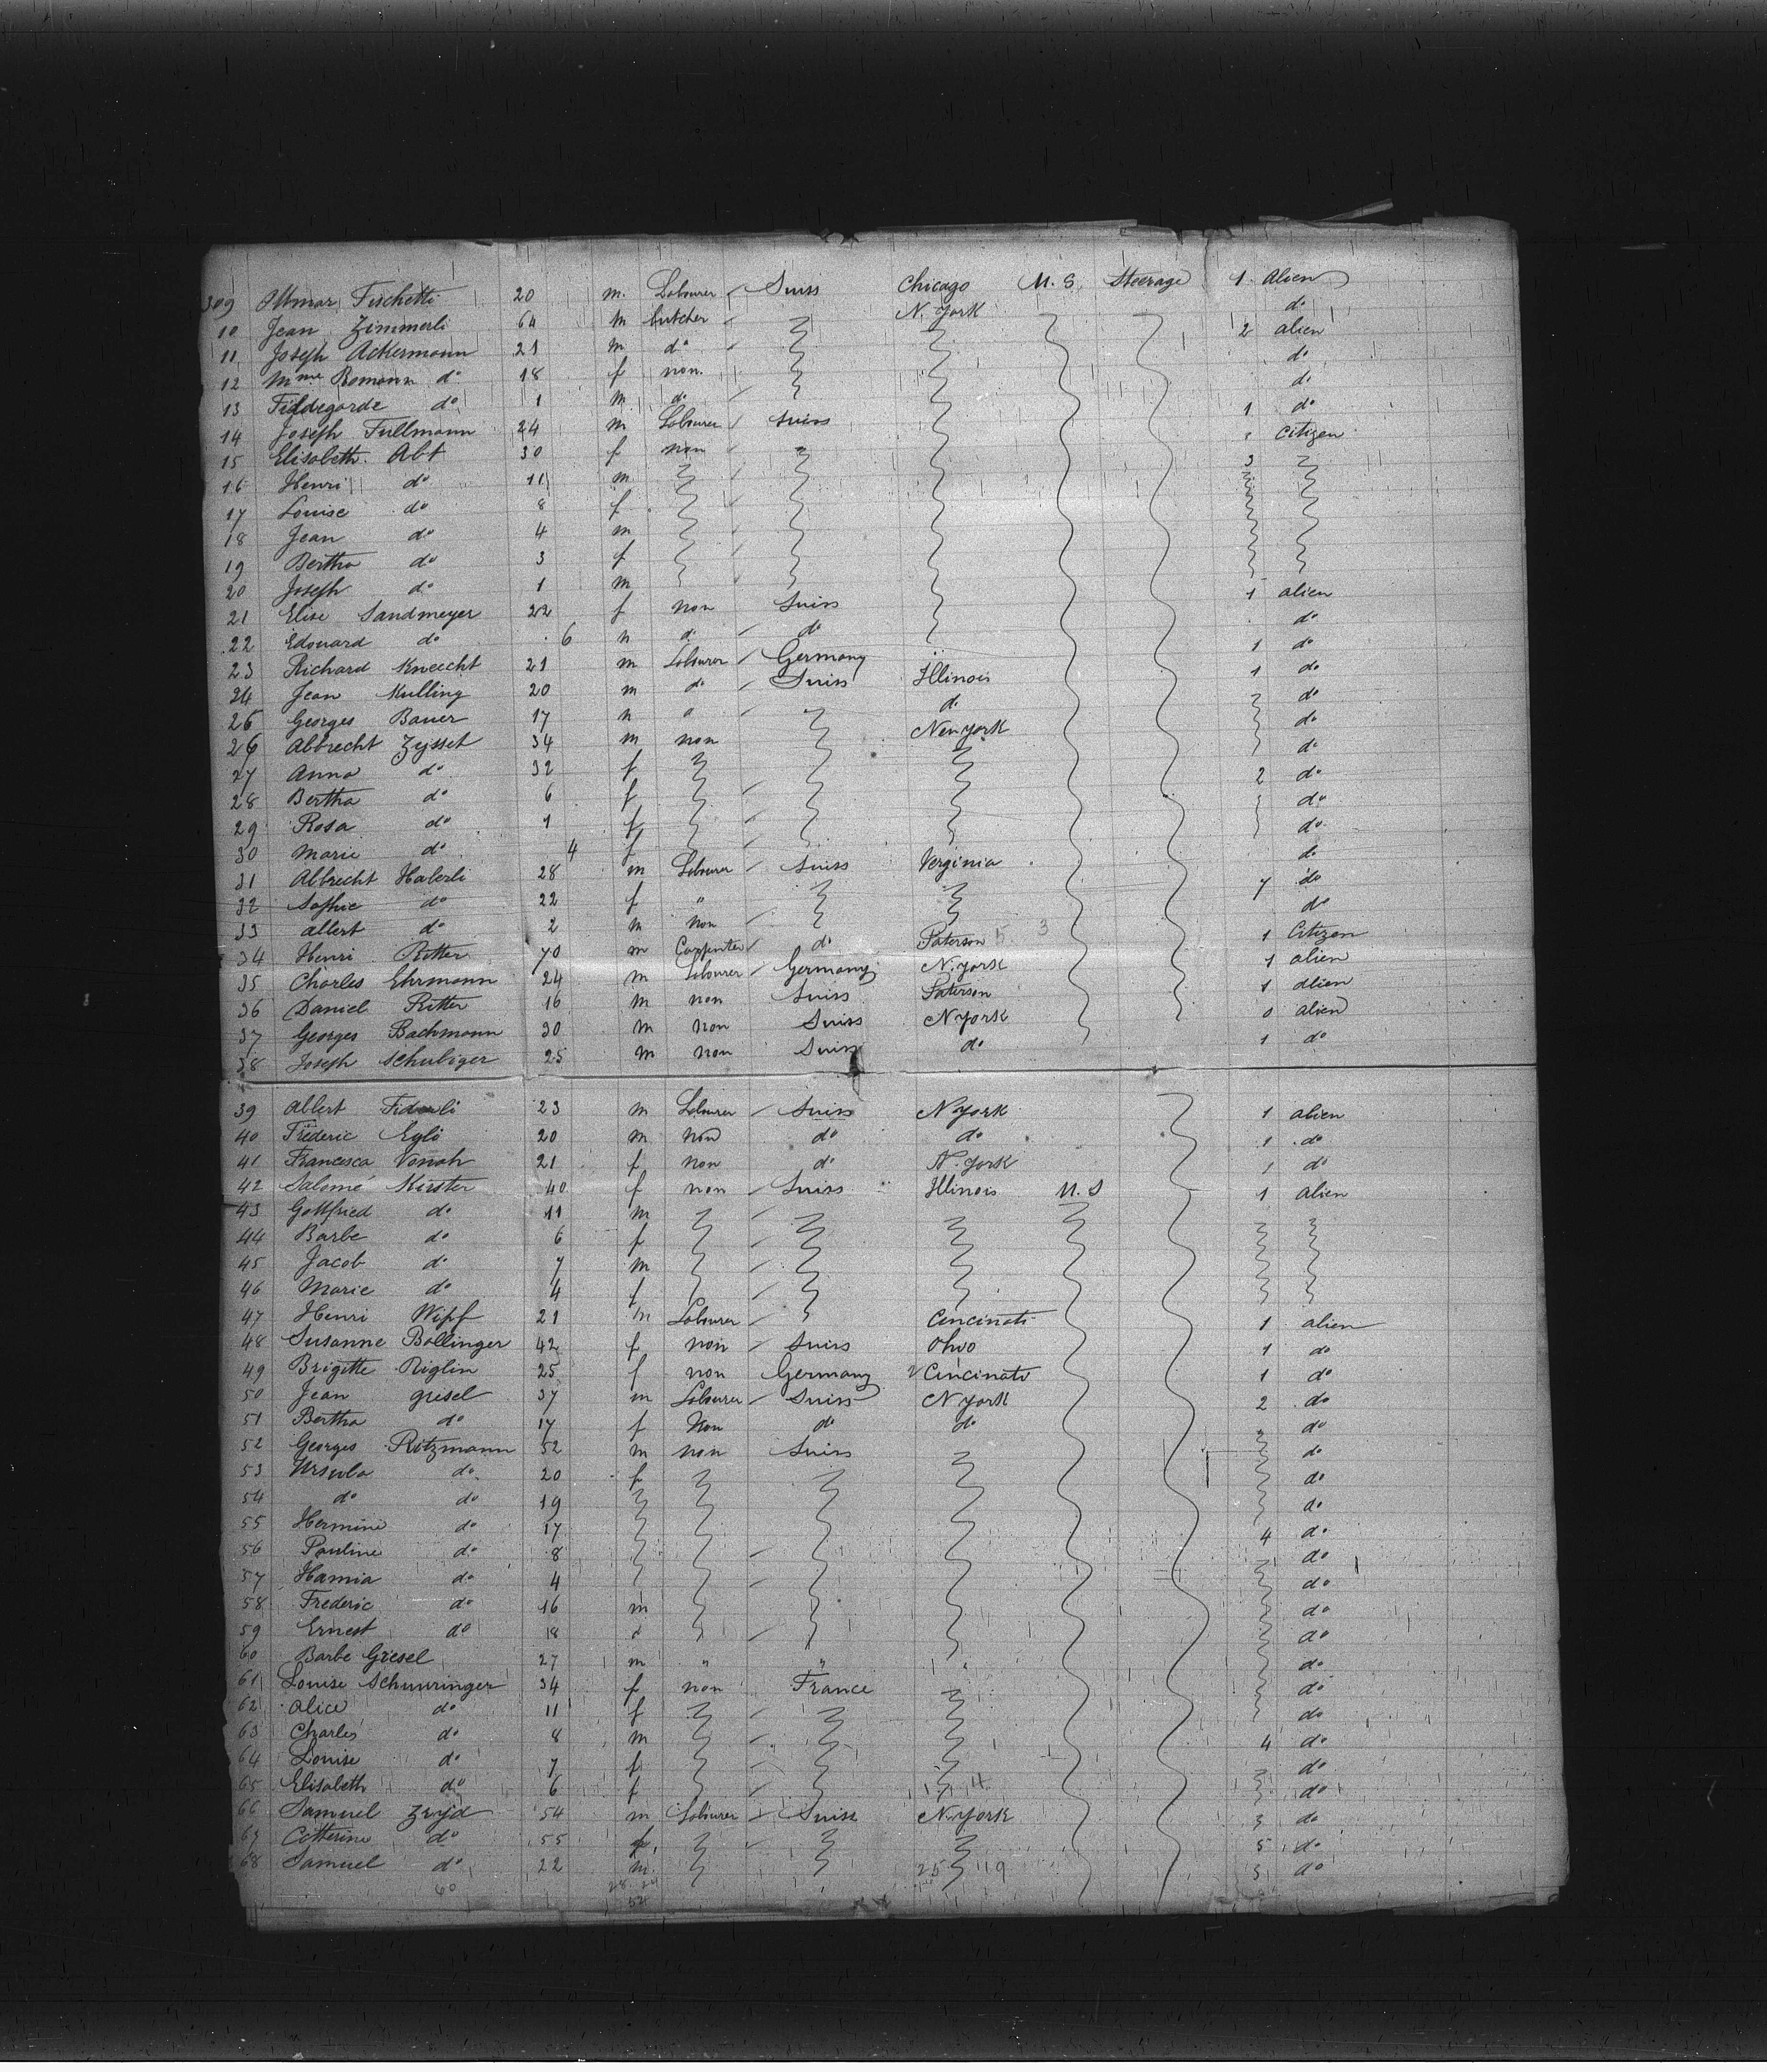 309 Ottmar Fischetti 20 m. Labourer Suiss Chicago U.S. Steerage 1 alien
10 Jean Zimmerli 64 m butcher N. York do
11 Joseph Ackermann 21 m do 2 alien
12 Mme Romann do 18 f non. do
13 Fildegarde do 1 m do do
14 Joseph Fullmann 24 m Labourer Suiss 1 do
15 Elisabeth Abt 30 f non citizen
16 Henri do 11 m 3
17 Louise do 8 f
18 Jean do 4 m
19 Bertha do 3 f
20 Joseph do 1 m
21 Elise Sandmeyer 22 f non Suiss 1 alien
22 Edouard do 6 m do do do
23 Richard Knecht 21 m Labourer Germany 1 do
24 Jean Kulling 20 m do Suiss Illinois 1 do
25 Georges Bauer 17 m do do
26 Albrecht Zysset 34 m non New york do
27 Anna do 32 f do
28 Bertha do 6 f 2 do
29 Rosa do 1 f do
30 Marie do 4 f do
31 Albrecht Haberli 28 m Labourer Suiss Verginia do
32 Sophie do 22 f " 7 do
33 albert do 2 m non do
34 Henri Ritter 70 m Carpenter do Paterson 5 3 1 Citizen
35 Charles Ehrmann 24 m Labourer Germany N. york 1 alien
36 Daniel Ritter 16 m non Suiss Paterson 1 alien
37 Georges Bachmann 30 m non Suiss N york 0 alien
38 Joseph Schubiger 25 m non Suiss do 1 do
39 Albert 23 m Labourer Suiss N York 1 alien
40 Fréderic Egli 20 m non do do 1 do
41 Francesca Vonah 21 f non do N. York 1 do
42 Salomé Kirster 40 f non Suiss Illinois U.S 1 alien
43 Gottfried do 11 m
44 Barbe do 6 f
45 Jacob do 7 m
46 Marie do 4 f
47 Henri Wipf 21 m Labourer Cincinati 1 alien
48 Susanne Bollinger 42 f non Suiss Ohio 1 do
49 Brigitte Riglin 25 f non Germany Cincinati 1 do
50 Jean gresel 37 m Labourer Suiss N York 2 do
51 Bertha do 17 f Non do do do
52 Georges Ritzmann 52 m non Suiss do
53 Ursula do 20 f do
54 do do 19 do
55 Hermine do 17 4 do
56 Pauline do 8 do
57 Hamia do 4 do
58 Frederic do 16 m do
59 Ernest do 18 do
60 Barbe Gresel 27 m " " do
61 Louise Schnuringer 34 f non France do
62 alice do 11 f do
63 Charles do 8 m 4 do
64 Louise do 7 f do
65 Elisabeth do 6 f do
66 Samuel Zryd 54 m Labourer Suiss N. York do
67 Catterine do 55 f 5 do
68 Samuel do 22 m. 25 19 do
60 28 24
52